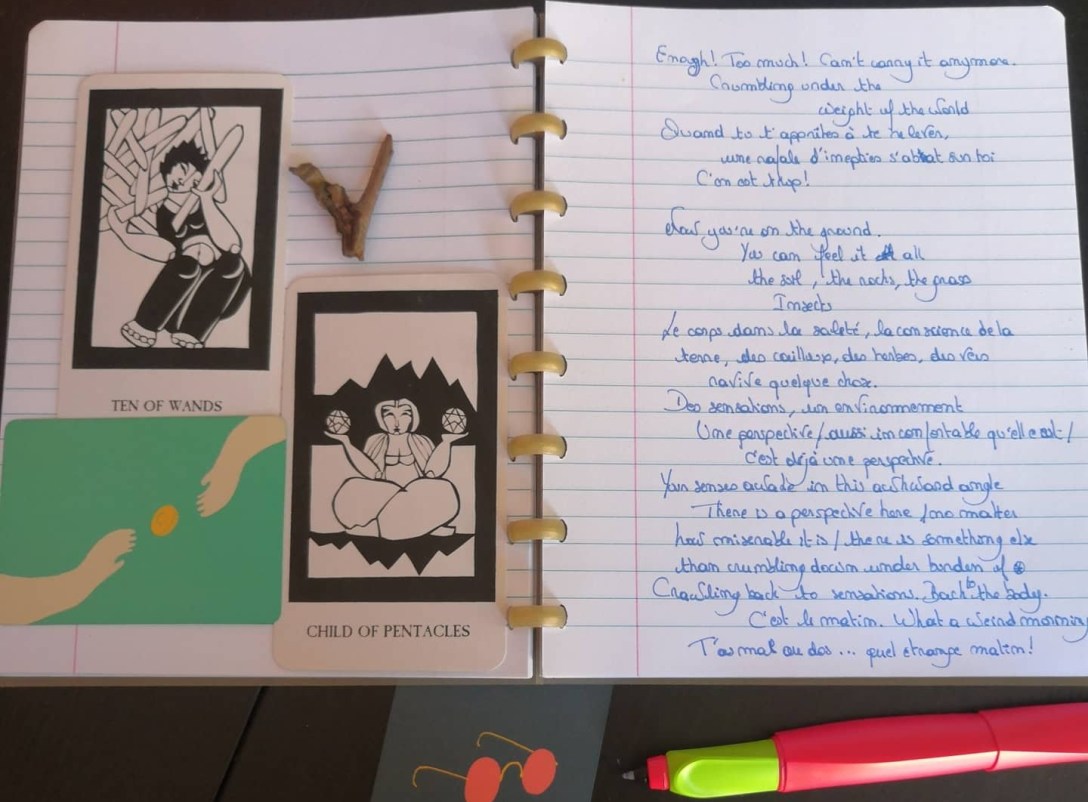 TEN OF WANDS
CHILD OF PENTACLES
Enough! Too much! Can't carry it anymore.
Crumbling under the
weight of the World
Quand tu t'apprêtes à te relever,
une rafale d'inepties s'abat sur toi
C'en est trop!
Now you're on the ground.
You can feel it all
the soil, the rocks, the grass
Insects
Le corps dans la saleté, la conscience de la
terre, des cailloux, des herbes, des vers
ravive quelque chose.
Des sensations, un environnement
Une perspective / aussi inconfortable qu'elle est /
C'est déjà une perspective.
Your senses awake in this awkward angle
There is a perspective here / no matter
how miserable it is / there is something else
than crumbling down under burden of
Crawling back to sensations. Back to the body.
C'est le matin. What a weird morning
T'as mal au dos... quel étrange matin!